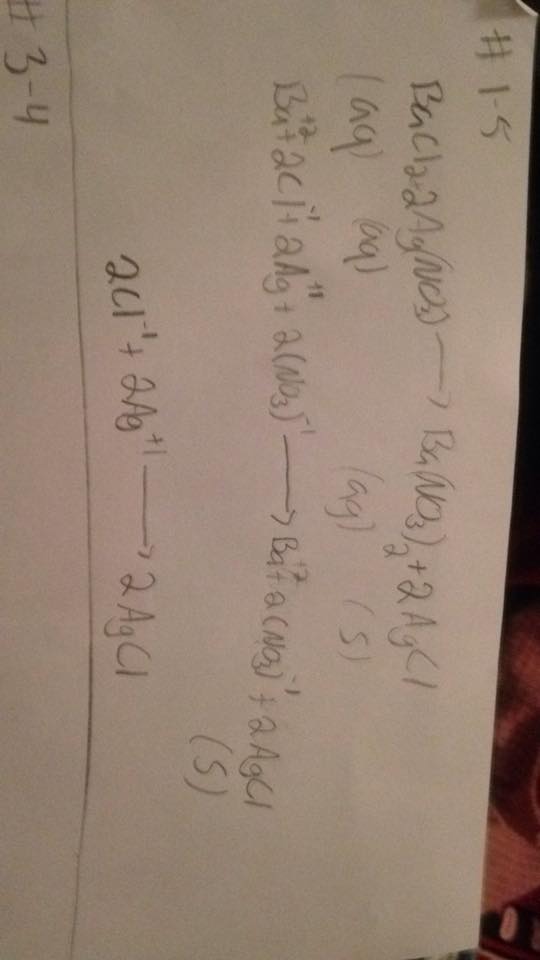 # 1-5
BaCl2+2Ag(NO3) → Ba(NO3)2+2AgCl
(aq) (aq) (aq) (s)
Ba+2+2Cl-1+2Ag+1+2(NO3)-1 → Ba+2+2(NO3)-1+2AgCl
(s)
2Cl-1+2Ag+1 → 2AgCl
# 3-4